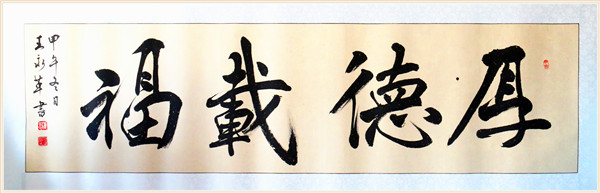 厚德載福
甲午冬月
王書